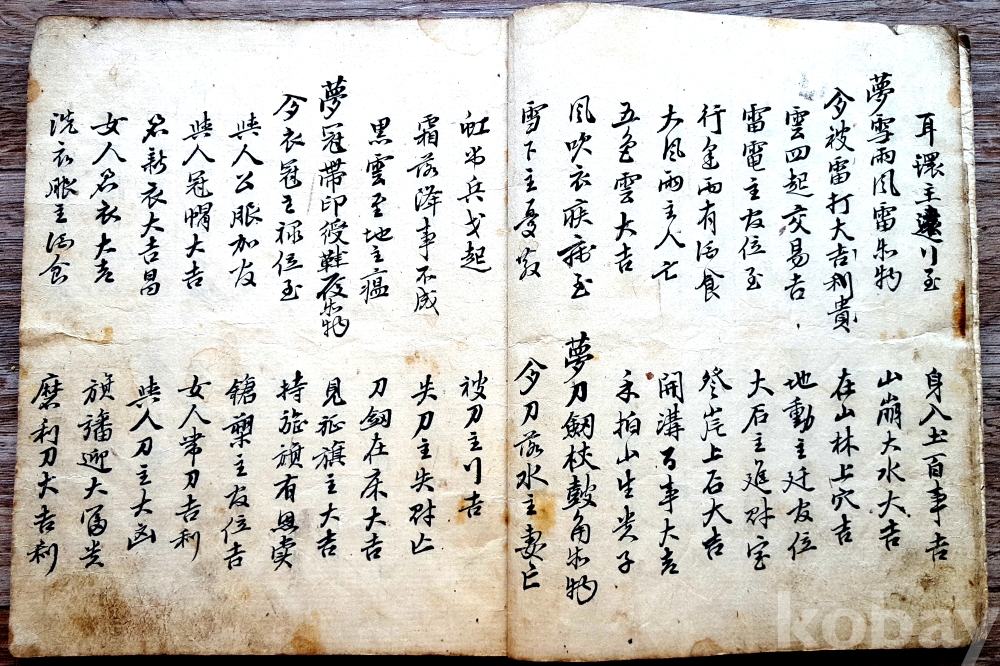 耳環主遠行至
夢雪雨風雷等物
今被雷打大吉利貴
雲四起交易吉
雷電主友位至
行逢雨有酒食
大風雨主人亡
五色雲大吉
風吹衣疾病至
雪下主憂喪
虹出兵戈起
霜落降事不成
黑雲至地主瘟
夢冠帶印綬鞋衣等物
今衣冠主祿位至
與人公服加友
與人冠帽大吉
著新衣大吉昌
女人著衣大吉
洗衣服主酒食
身入土百事吉
山崩大水大吉
在山林上穴吉
地動主廷友位
大石主進財宝
登岸上石大吉
開溝百事大吉
手拍山生貴子
夢刀劒杖鼓角等物
今刀落水主妻亡
被刀主行吉
失刀主失財亡
刀劒在床大吉
見征旗主大吉
持旌旗有恩賞
鎗槊主友位吉
女人帶刀吉利
與人刀主大凶
旗旛迎大富貴
磨利刀大吉利